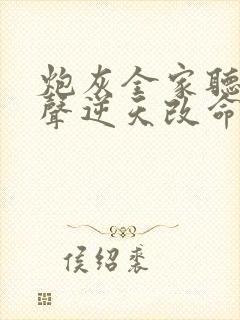 炮灰全家聽
聲逆天改命
侯紹裘